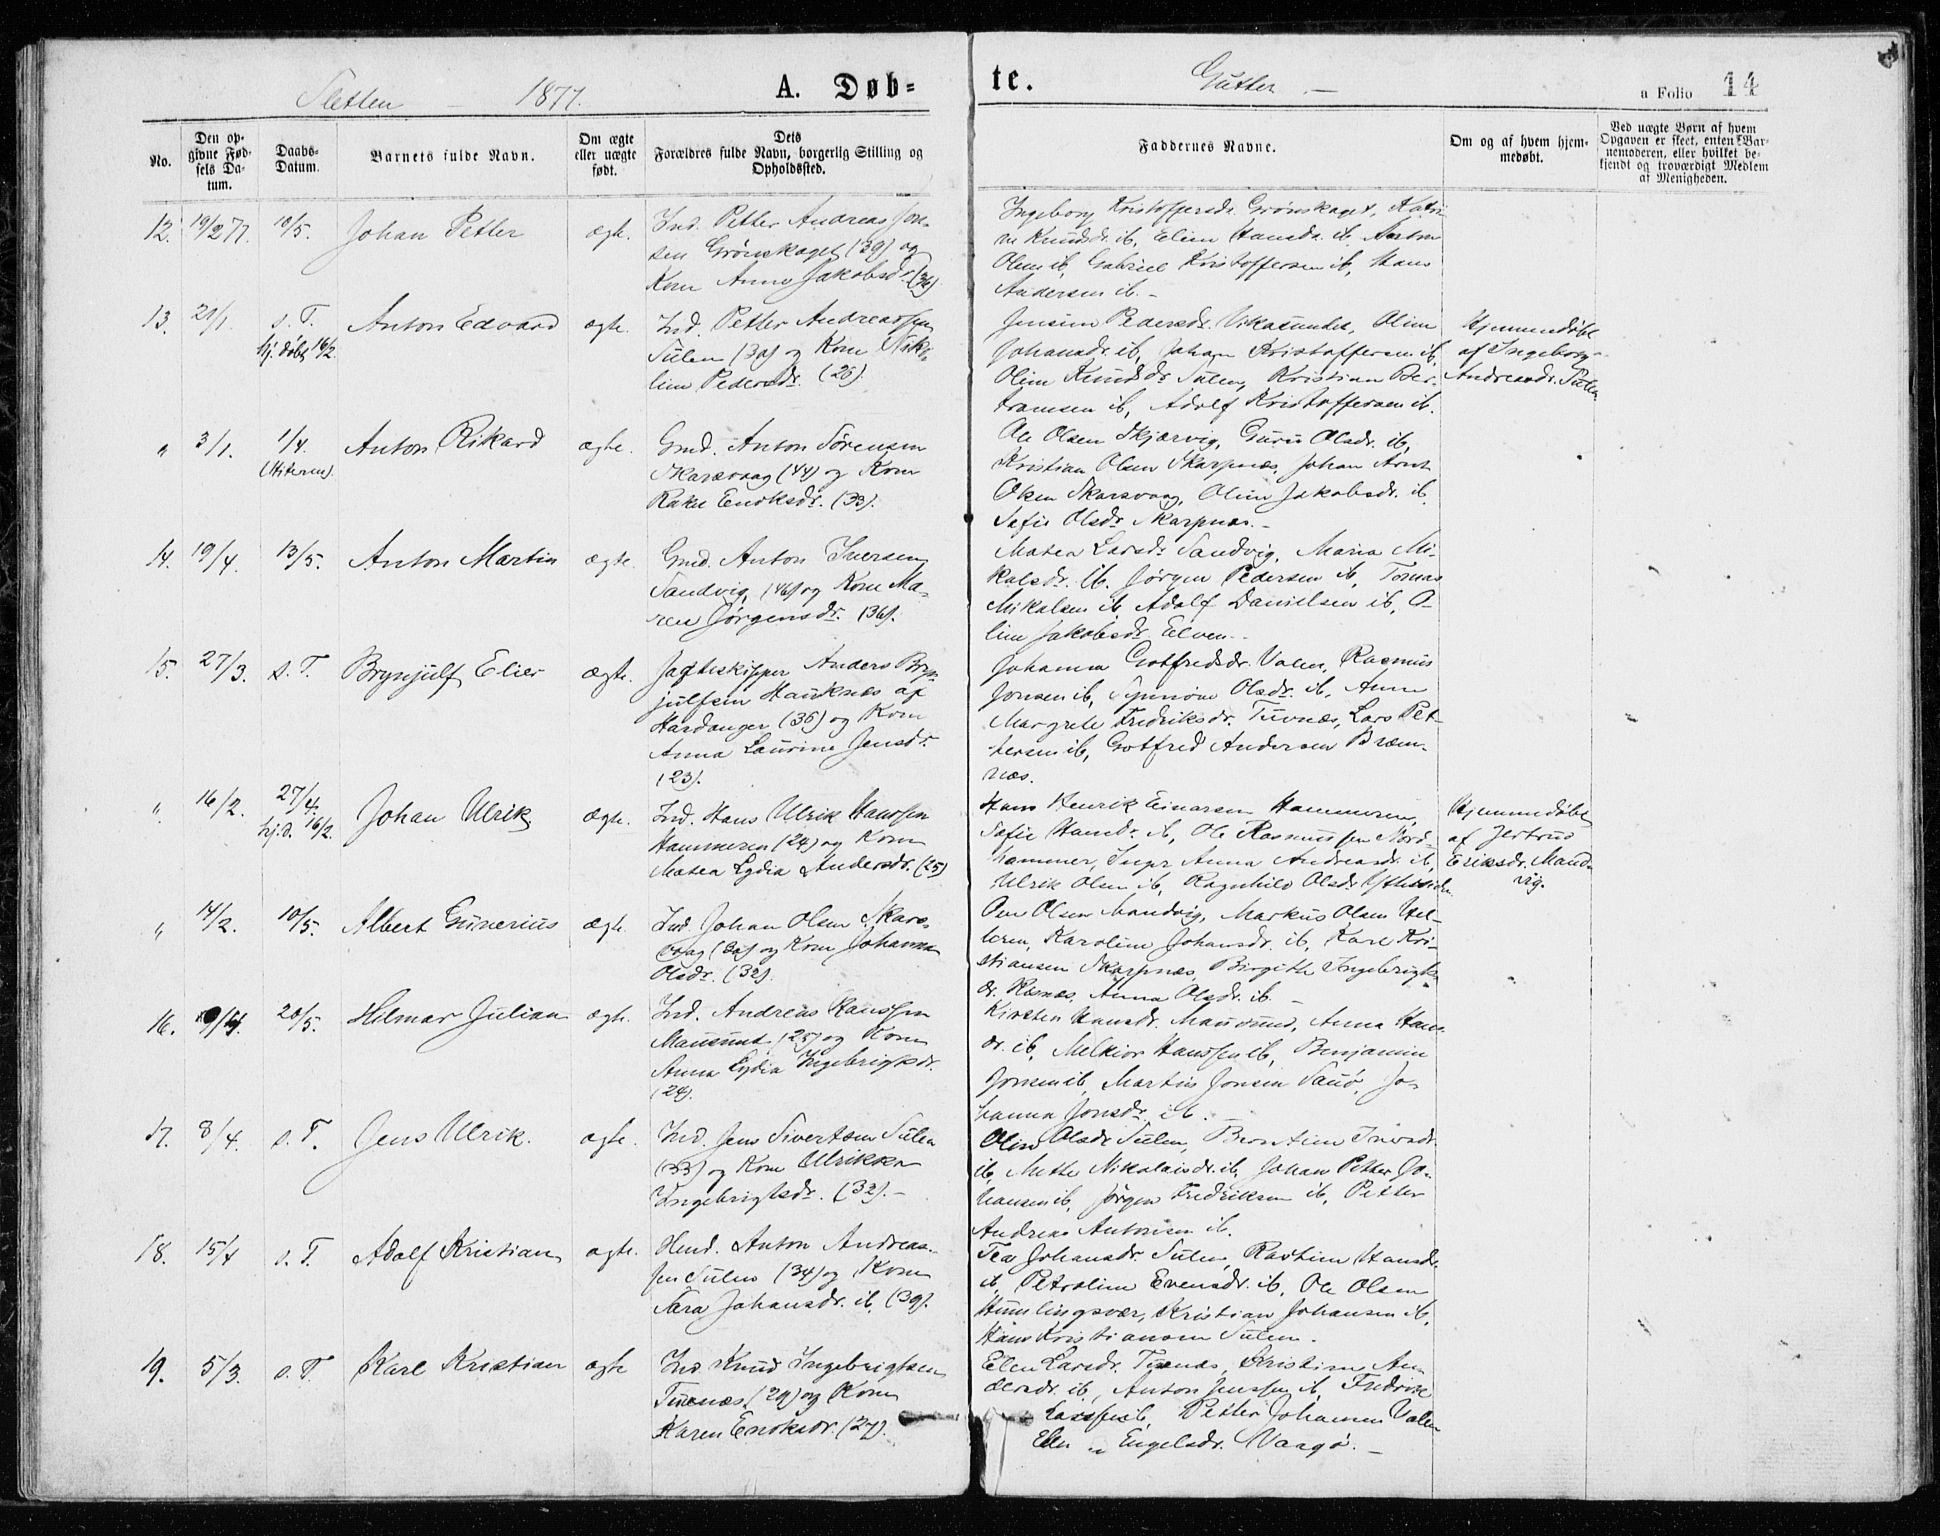 Sletten — 1877.
A. Døb-
te.
Gutter —
a Folio 14
No.
Den op-
givne Fød-
sels Da-
tum.
Daabs-
Datum.
Barnets fulde Navn.
Om ægte
eller uægte
født.
Dets
Forældres fulde Navn, borgerlig Stilling og
Opholdssted.
Faddernes Navne.
Om og af hvem hjem-
medøbt.
Ved uægte Børn af hvem
Opgaven er skeet, enten Bar-
nemoderen, eller hvilket be-
kjendt og troværdigt Medlem
af Menigheden.
12. 19/2 77. 10/5. Johan Petter ægte.
Ind. Petter Andreas Jon-
sen Grønskaget (29) og
Kone Anne Jakobsdr. (36)
Ingeborg Kristoffersdr. Grønskaget, Katri-
ne Knudsdr. ib, Elien Hansdr. ib, Anton
Olsen ib, Gabriel Kristoffersen ib, Hans
Andersen ib. -
13. 21/1. s. T. Anton Edvard ægte.
hj. døbt 16/2.
Ind. Petter Andreassen
Sulen (30) og Kone Nik-
line Pedersdr. (26)
Jensine Pedersdr. Vikasundet, Oline
Johansdr. ib, Johan Kristoffersen ib.
Oline Knudsdr. Sulen, Kristian Ber-
tramsen ib, Adolf Kristoffersen ib.
Hjemmedøbt
af Ingeborg
Andreasdr. Sulen
" 3/1. 1/4. Anton Rikard ægte.
(Hiteren).
Gmd. Anton Sørensen
Skarsvaag (44) og Kone
Rakel Enoksdr. (33).
Ole Olsen Skjærvig, Guru Olsdr. ib,
Kristian Olsen Skarpnæs, Johan Arnt
Olsen Skarsvaag, Oline Jakobsdr. ib
Sofie Olsdr. Skarpnæs. -
14. 19/4. 13/5. Anton Martin ægte.
Gmd. Anton Iversen
Sandvig, (46) og Kone Ma-
ren Jørgensdr. (36).
Matea Larsdr. Sandvig, Maria Mi-
kalsdr. ib. Jørgen Pedersen ib, Tomas
Mikalsen ib, Adolf Danielsen ib, O-
line Jakobsdr. Elven.
15. 27/3. s. T. Brynjulf Elier ægte.
Jagteskipper Anders Bryn-
julfsen Hauknæs af
Hardanger (36) og Kone
Anna Laurine Jensdr.
(23).
Johanna Gotfredsdr. Valen, Rasmus
Jonsen ib, Synnøve Olsdr. ib, Anne
Margrete Fredriksdr. Tuvnæs, Lars Pet-
tersen ib, Gotfred Andersen Bræm-
næs.
". 16/2. 27/4. Johan Ulrik ægte.
hj.d. 16/2
Ind. Hans Ulrik Hanssen
Hammeren (24) og Kone
Matea Lydia Andersdr. (25)
Hans Henrik Einarsen Hammeren,
Sofie Hansdr. ib, Ole Rasmussen Nord-
hammer, Inger Anna Andreasdr. ib,
Ulrik Olsen ib, Ragnhild Olsdr.
Hjemmedøbt
af Jertrud
Eriksdr. Mand-
vig.
" 14/2. 10/5. Albert Gunerius ægte.
Ind. Johan Olsen Skars-
vaag (32) og Kone Johanna
Olsdr. (32).
Ove Olsen Mandvig, Markus Olsen Hel-
leren, Karoline Johansdr. ib, Karl Kri-
stiansen Skarpnæs, Birgithe Ingebrigts-
dr. Rosnæs, Anna Olsdr. ib. -
16. 9/4. 20/5. Hilmar Julian ægte.
Ind. Andreas Hanssen
Mausund (25) og Kone
Anna Lydia Ingebrigtsdr.
(24).
Kirsten Hansdr. Mausund, Anna Hans-
dr. ib, Melkior Hanssen ib, Benjamin
Jonsen ib, Martin Jonsen Sauø, Jo-
hanna Jonsdr. ib.
17. 8/4. s. T. Jens Ulrik. ægte.
Ind. Jens Sivertsen Sulen
(33) og Kone Ulrikka
Ingebrigtsdr. (32). -
Oline Olsdr. Sulen, Berntine Iversdr.
ib, Mette Nikolaisdr. ib, Johan Petter Jo-
hansen ib, Jørgen Fredriksen ib, Petter
Andreas Antonsen ib.
18. 15/4 s. T. Adolf Kristian ægte.
Hmd. Anton Andreas-
sen Sulen (34) og Kone
Sara Johansdr. ib, (39).
Tea Johansdr. Sulen, Hansdr.
ib, Petroline Evensdr. ib, Ole Olsen
Humlingsvær, Kristian Johansen ib,
Hans Kristiansen Sulen.
19. 5/3. s. T. Karl Kristian ægte
Ind. Knud Ingebrigtsen
Tuvnæs (29) og Kone
Karen Enoksdr. (27).
Elen Larsdr. Tuvnæs, Kristine An-
dersdr. ib, Anton Jenssen ib, Fredrik
Larssen ib, Petter Johansen Valen
Elen Engelsdr. Vaagø. -